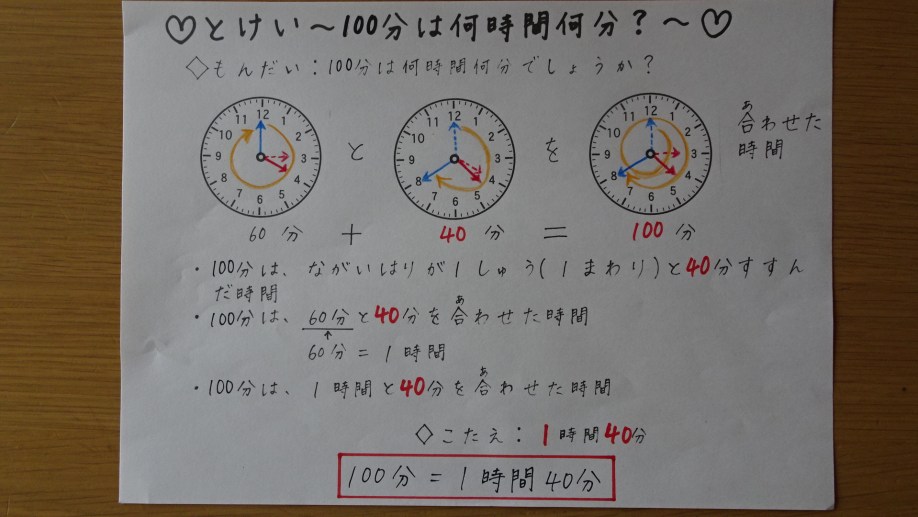 ♡とけい～100分は何時間何分？～♡
◇もんだい：100分は何時間何分でしょうか？
12 1 2 3 4 5 6 7 8 9 10 11
と
12 1 2 3 4 5 6 7 8 9 10 11
を
12 1 2 3 4 5 6 7 8 9 10 11
あ
合わせた
時間
60分 + 40分 = 100分
・100分は、ながいはりが1しゅう(1まわり)と40分すすん
だ時間
あ
・100分は、60分と40分を合わせた時間
↑
60分=1時間
あ
・100分は、1時間と40分を合わせた時間
◇こたえ：1時間40分
100分=1時間40分